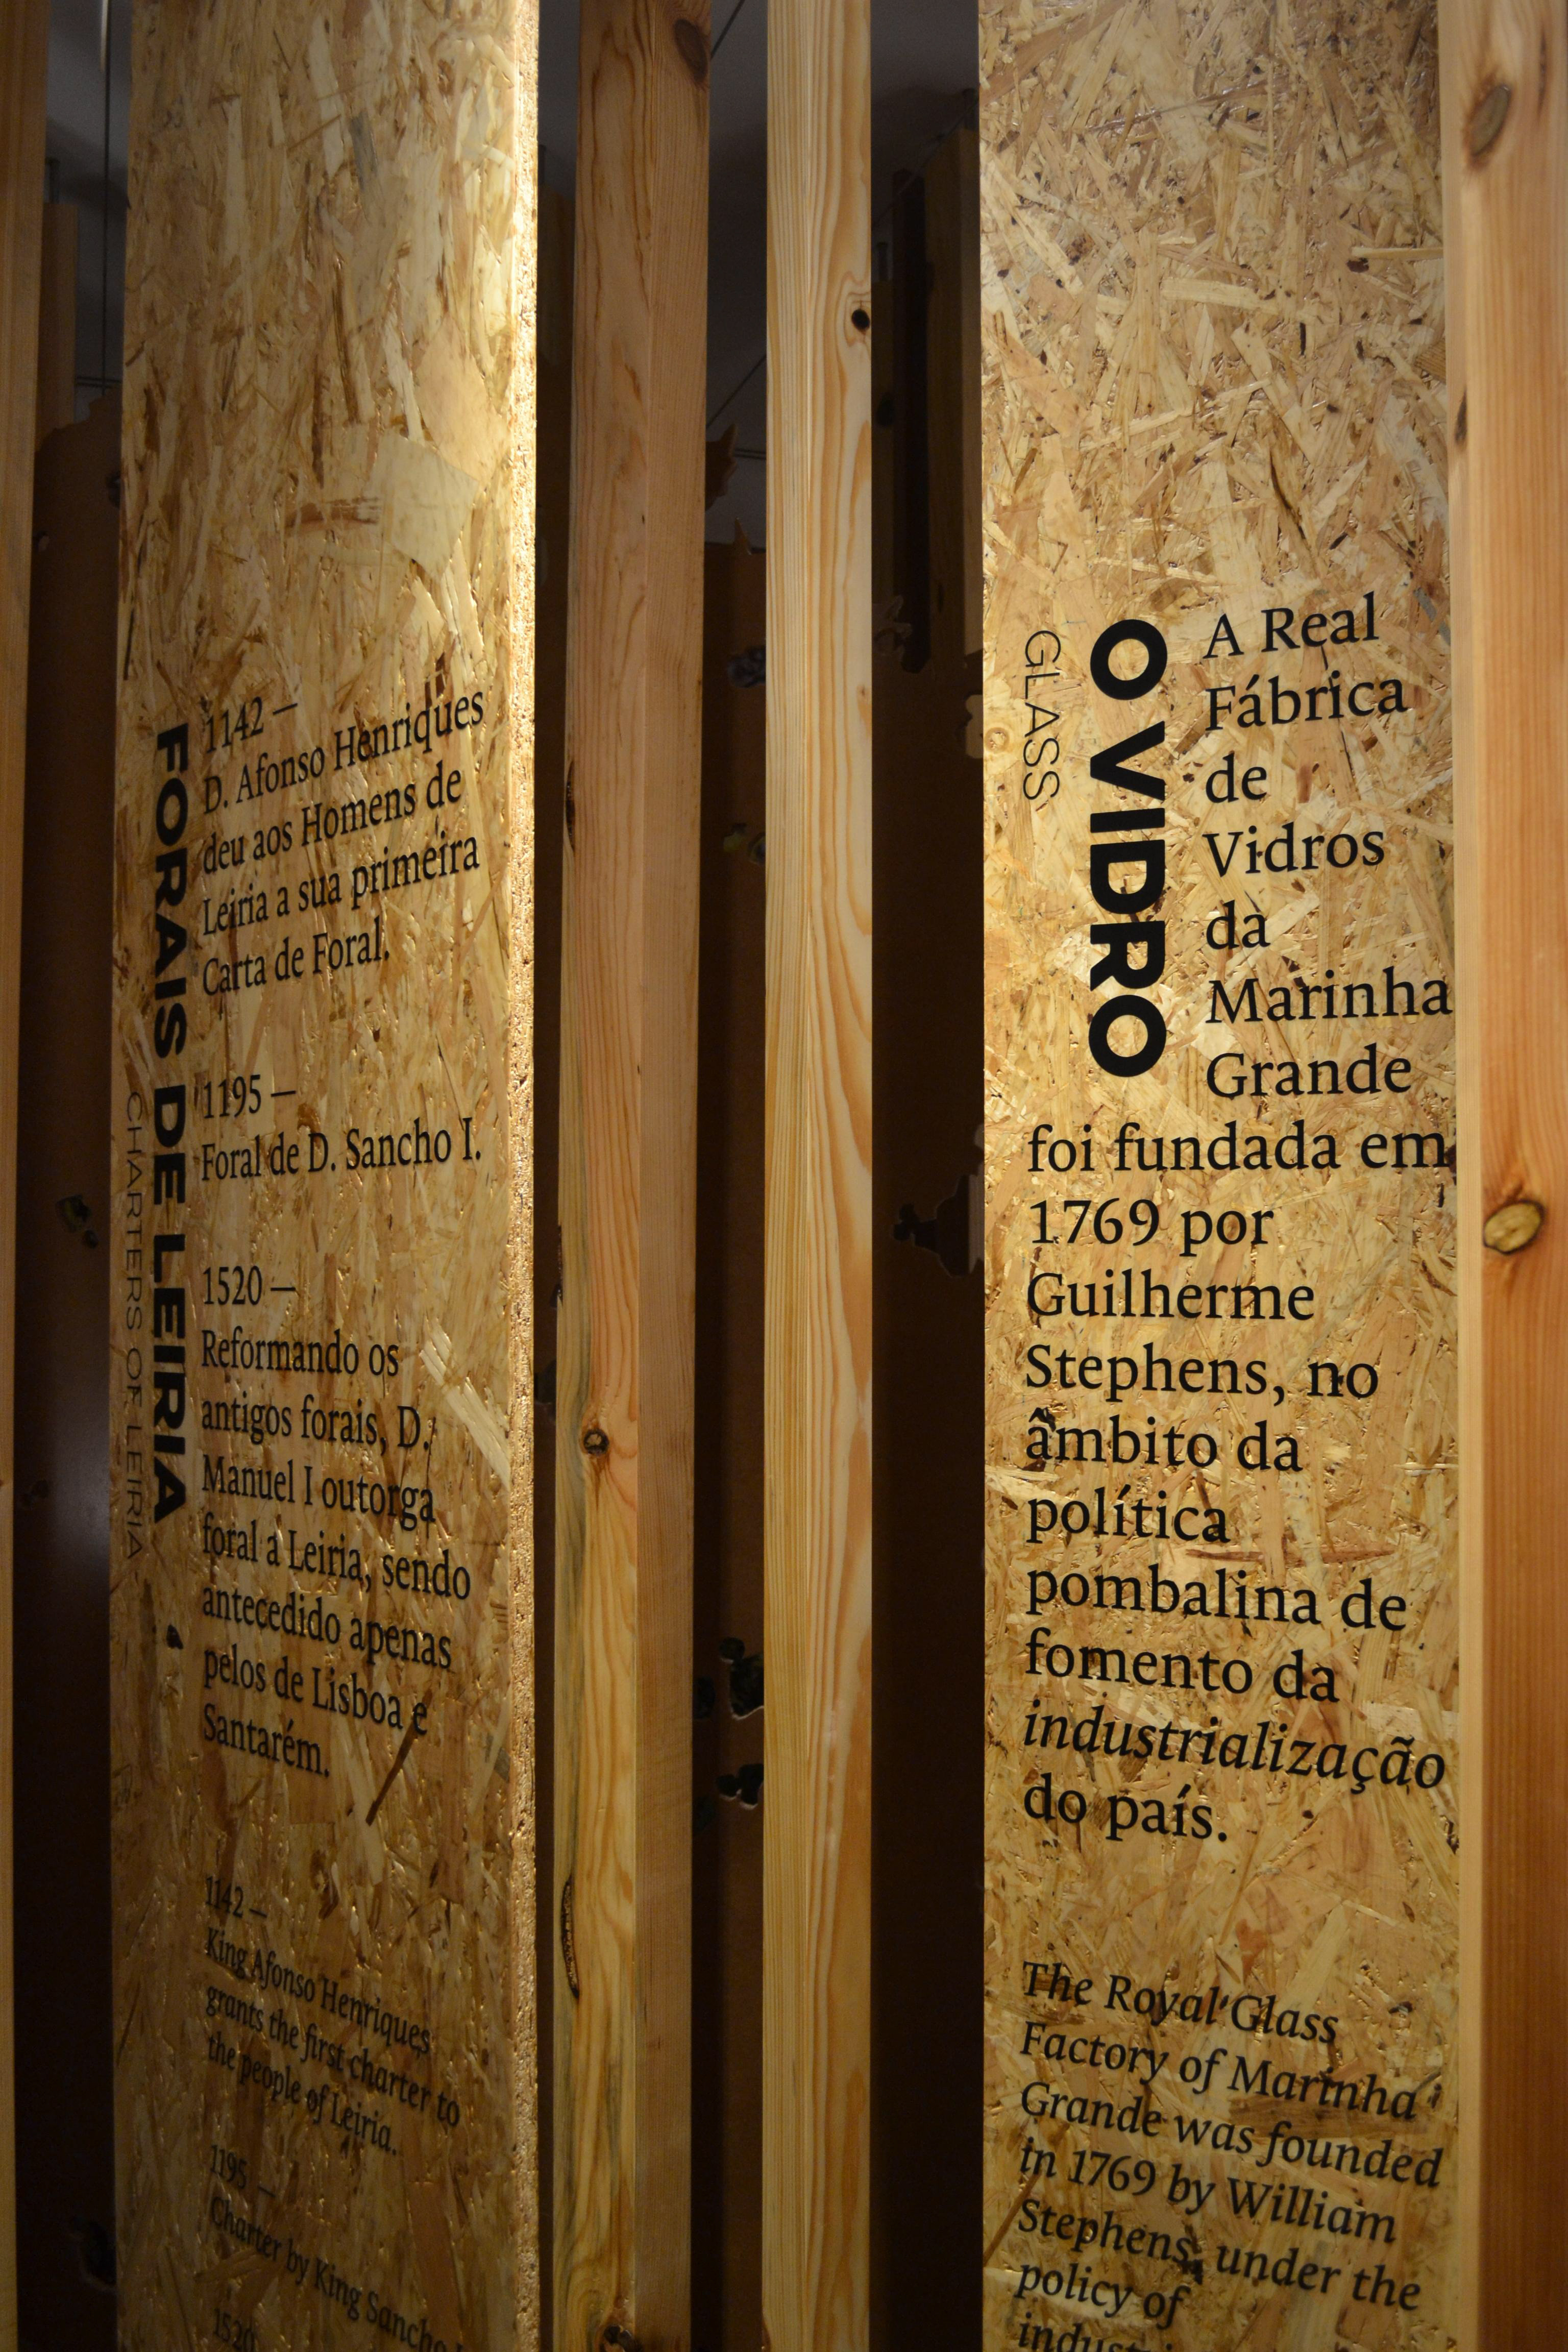 FORAIS DE LEIRIA
CHARTERS OF LEIRIA
1142 —
D. Afonso Henriques
deu aos Homens de
Leiria a sua primeira
Carta de Foral.
1195 —
Foral de D. Sancho I.
1520 —
Reformando os
antigos forais, D.
Manuel I outorga
foral a Leiria, sendo
antecedido apenas
pelos de Lisboa e
Santarém.
1142 —
King Afonso Henriques
grants the first charter to
the people of Leiria.
1195 —
Charter by King Sancho
1520
O VIDRO
GLASS
A Real
Fábrica
de
Vidros
da
Marinha
Grande
foi fundada em
1769 por
Guilherme
Stephens, no
âmbito da
política
pombalina de
fomento da
industrialização
do país.
The Royal Glass
Factory of Marinha
Grande was founded
in 1769 by William
Stephens, under the
policy of